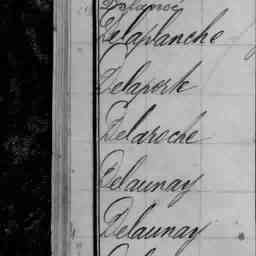 Delaplanche
Delaporte
Delaroche
Delaunay
Delaunay